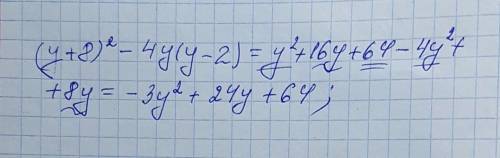 (y+8)² - 4y(y-2) = y²+16y+64-4y²+
+8y = -3y²+24y+64;